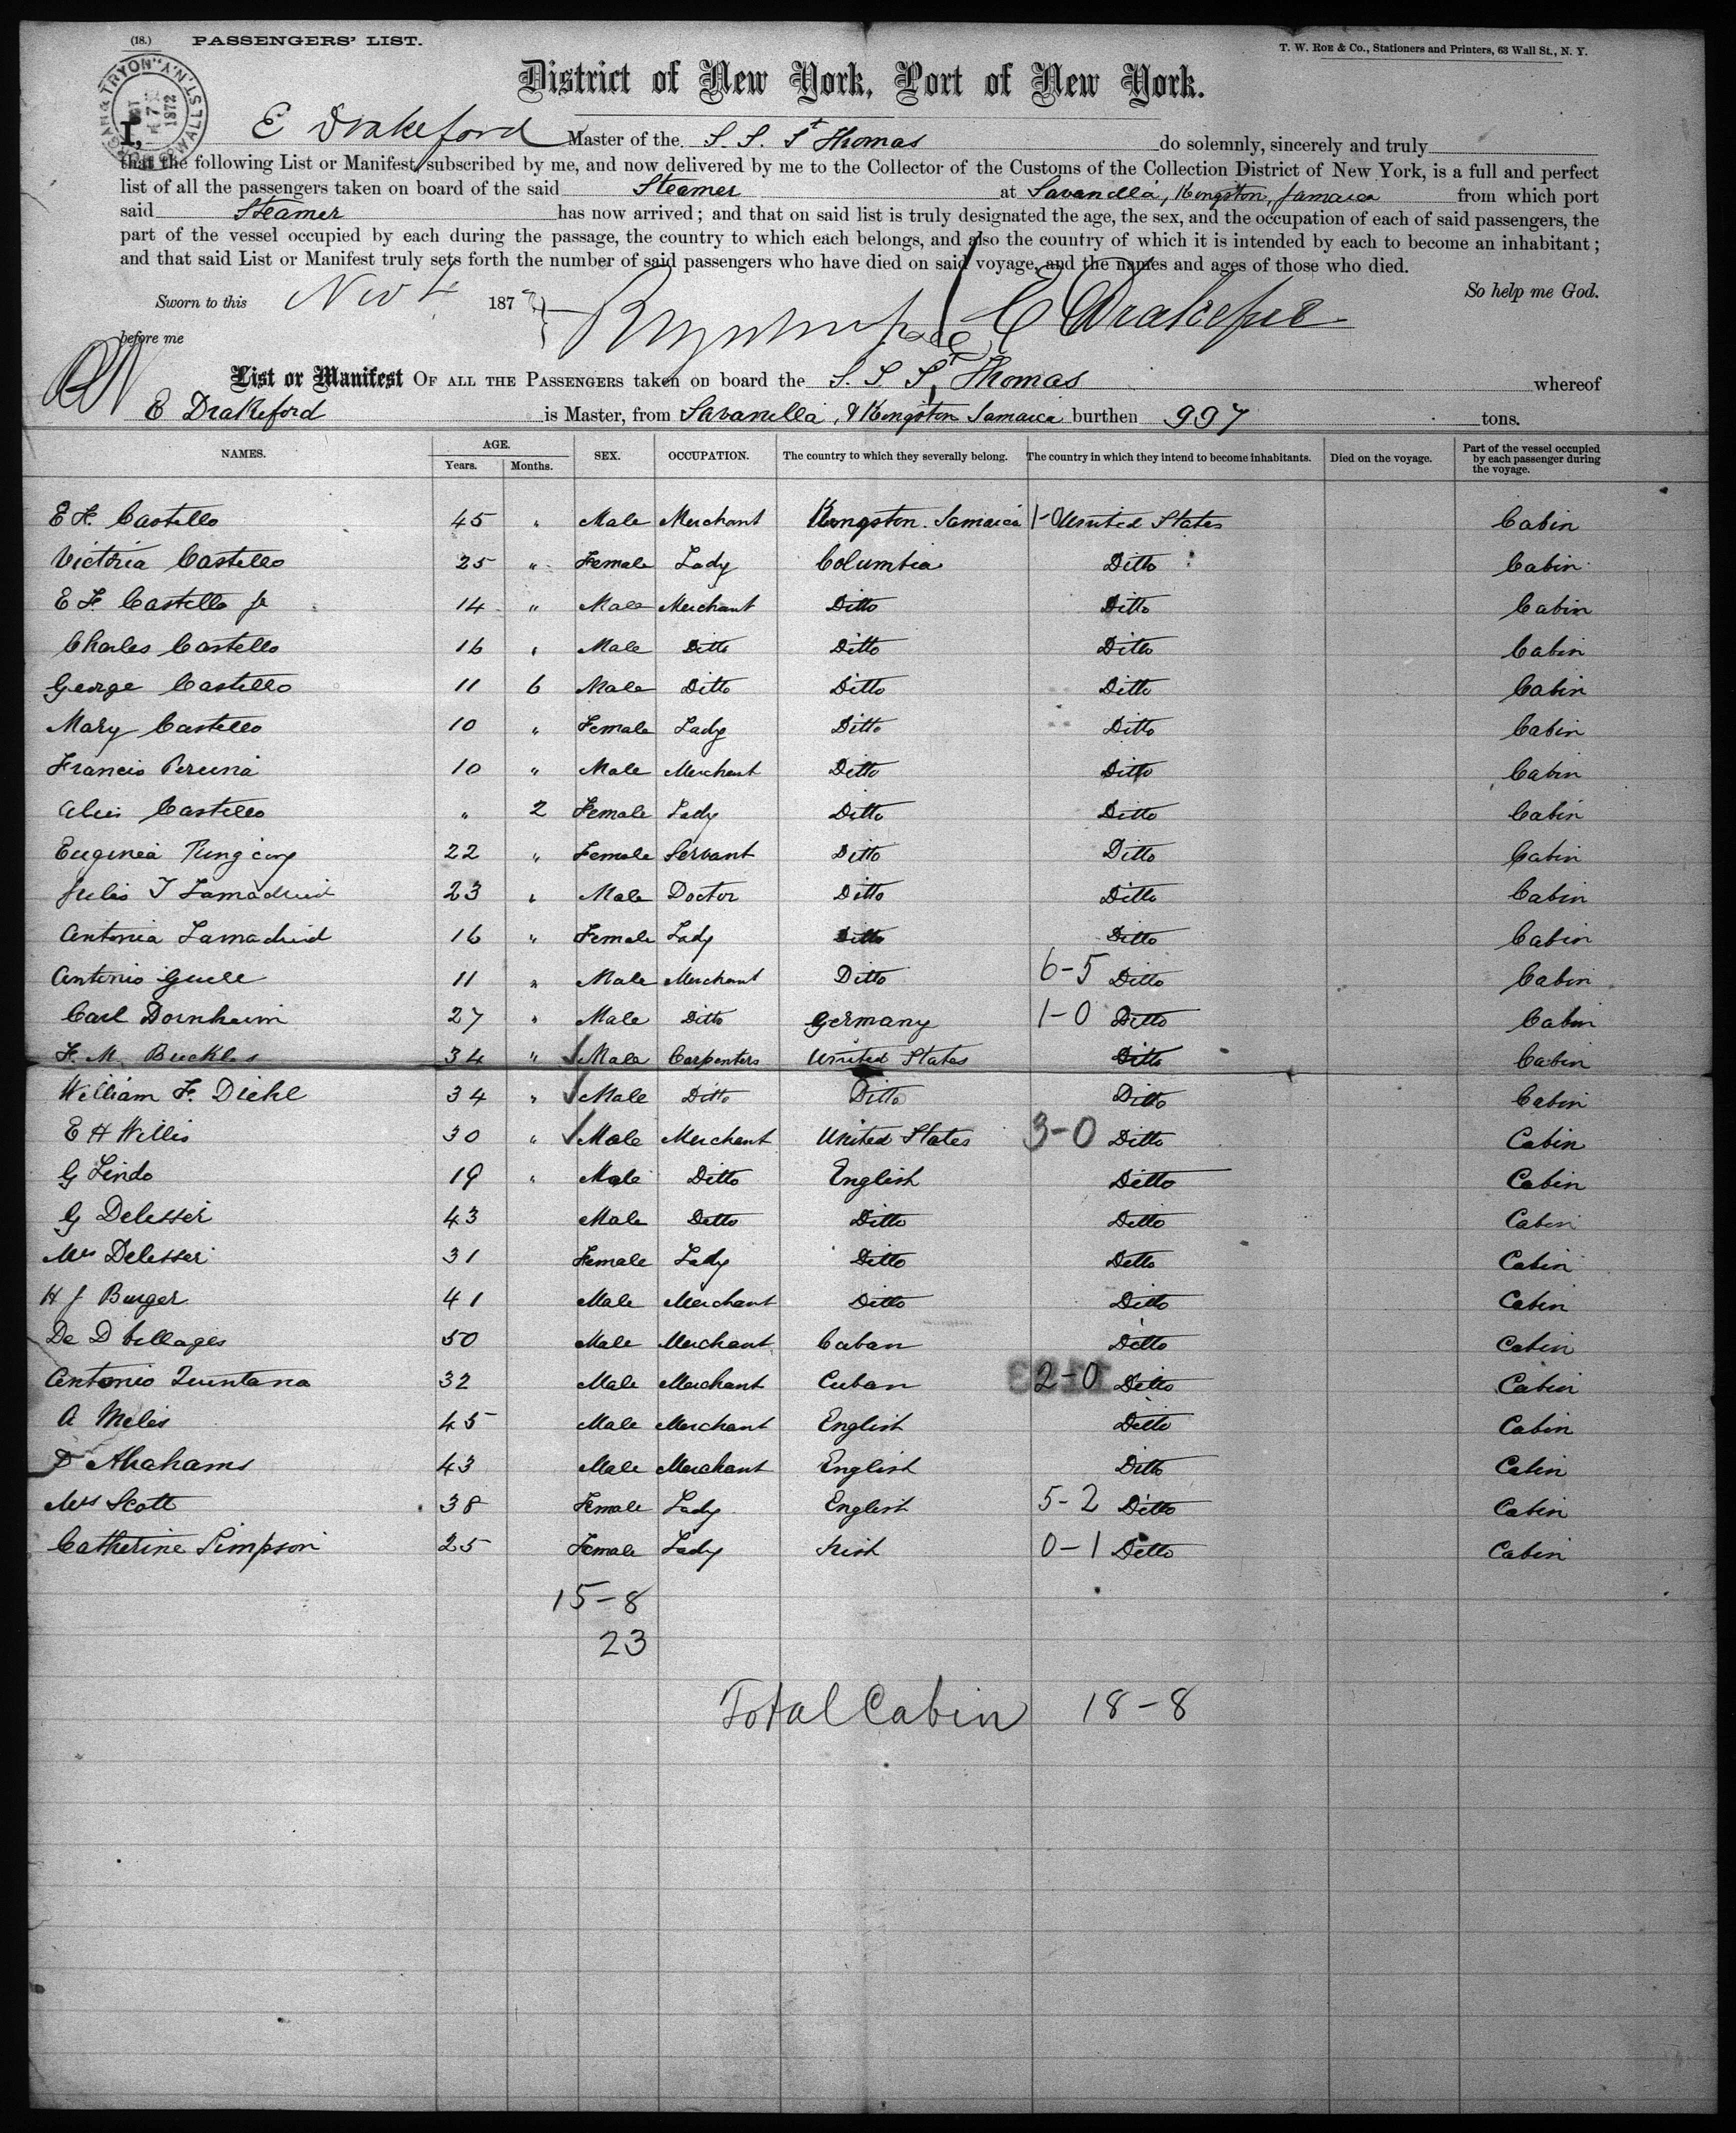 (18.) PASSENGERS' LIST.
T. W. ROE & Co., Stationers and Printers, 63 Wall St., N. Y.
TRYON 1872 WALL ST. N.Y.
District of New York, Port of New York.
I, E Drakeford Master of the S. S. St Thomas do solemnly, sincerely and truly
that the following List or Manifest, subscribed by me, and now delivered by me to the Collector of the Customs of the Collection District of New York, is a full and perfect
list of all the passengers taken on board of the said Steamer at Savanella, Kingston, Jamaica from which port
said Steamer has now arrived; and that on said list is truly designated the age, the sex, and the occupation of each of said passengers, the
part of the vessel occupied by each during the passage, the country to which each belongs, and also the country of which it is intended by each to become an inhabitant;
and that said List or Manifest truly sets forth the number of said passengers who have died on said voyage, and the names and ages of those who died.
So help me God.
Sworn to this Nov 187
E Drakeford
before me
List or Manifest OF ALL THE PASSENGERS taken on board the S. S. St Thomas whereof
E Drakeford is Master, from Savanella, & Kingston Jamaica burthen 997 tons.
NAMES. AGE. Years. Months. SEX. OCCUPATION. The country to which they severally belong. The country in which they intend to become inhabitants. Died on the voyage. Part of the vessel occupied by each passenger during the voyage.
E F. Castello 45 " Male Merchant Kingston. Jamaica 1- United States Cabin
Victoria Castello 25 " Female Lady Columbia Ditto Cabin
E F Castello Jr 14 " Male Merchant Ditto Ditto Cabin
Charles Castello 16 " Male Ditto Ditto Ditto Cabin
George Castello 11 6 Male Ditto Ditto Ditto Cabin
Mary Castello 10 " Female Lady Ditto Ditto Cabin
Francis 10 " Male Merchant Ditto Ditto Cabin
Castello " 2 Female Lady Ditto Ditto Cabin
Eugenia 22 " Female Servant Ditto Ditto Cabin
Julio T Lamadrid 23 " Male Doctor Ditto Ditto Cabin
Antonia Lamadrid 16 " Female Lady Ditto Ditto Cabin
Antonio 11 " Male Merchant Ditto 6-5 Ditto Cabin
Carl Dornheim 27 " Male Ditto Germany 1-0 Ditto Cabin
F. M. Buckles 34 " Male Carpenters United States Ditto Cabin
William F. Diehl 34 " Male Ditto Ditto Ditto Cabin
E H Willis 30 " Male Merchant United States 3-0 Ditto Cabin
G Lindo 19 " Male Ditto English Ditto Cabin
G Delesser 43 Male Ditto Ditto Ditto Cabin
Mrs Delesser 31 Female Lady Ditto Ditto Cabin
H J Burger 41 Male Merchant Ditto Ditto Cabin
De D 50 Male Merchant Cuban Ditto Cabin
Antonio Quintana 32 Male Merchant Cuban 2-0 Ditto Cabin
A Meles 45 Male Merchant English Ditto Cabin
D Abrahams 43 Male Merchant English Ditto Cabin
Mrs Scott 38 Female Lady English 5-2 Ditto Cabin
Catherine Simpson 25 Female Lady Irish 0-1 Ditto Cabin
15-8
23
Total Cabin 18-8